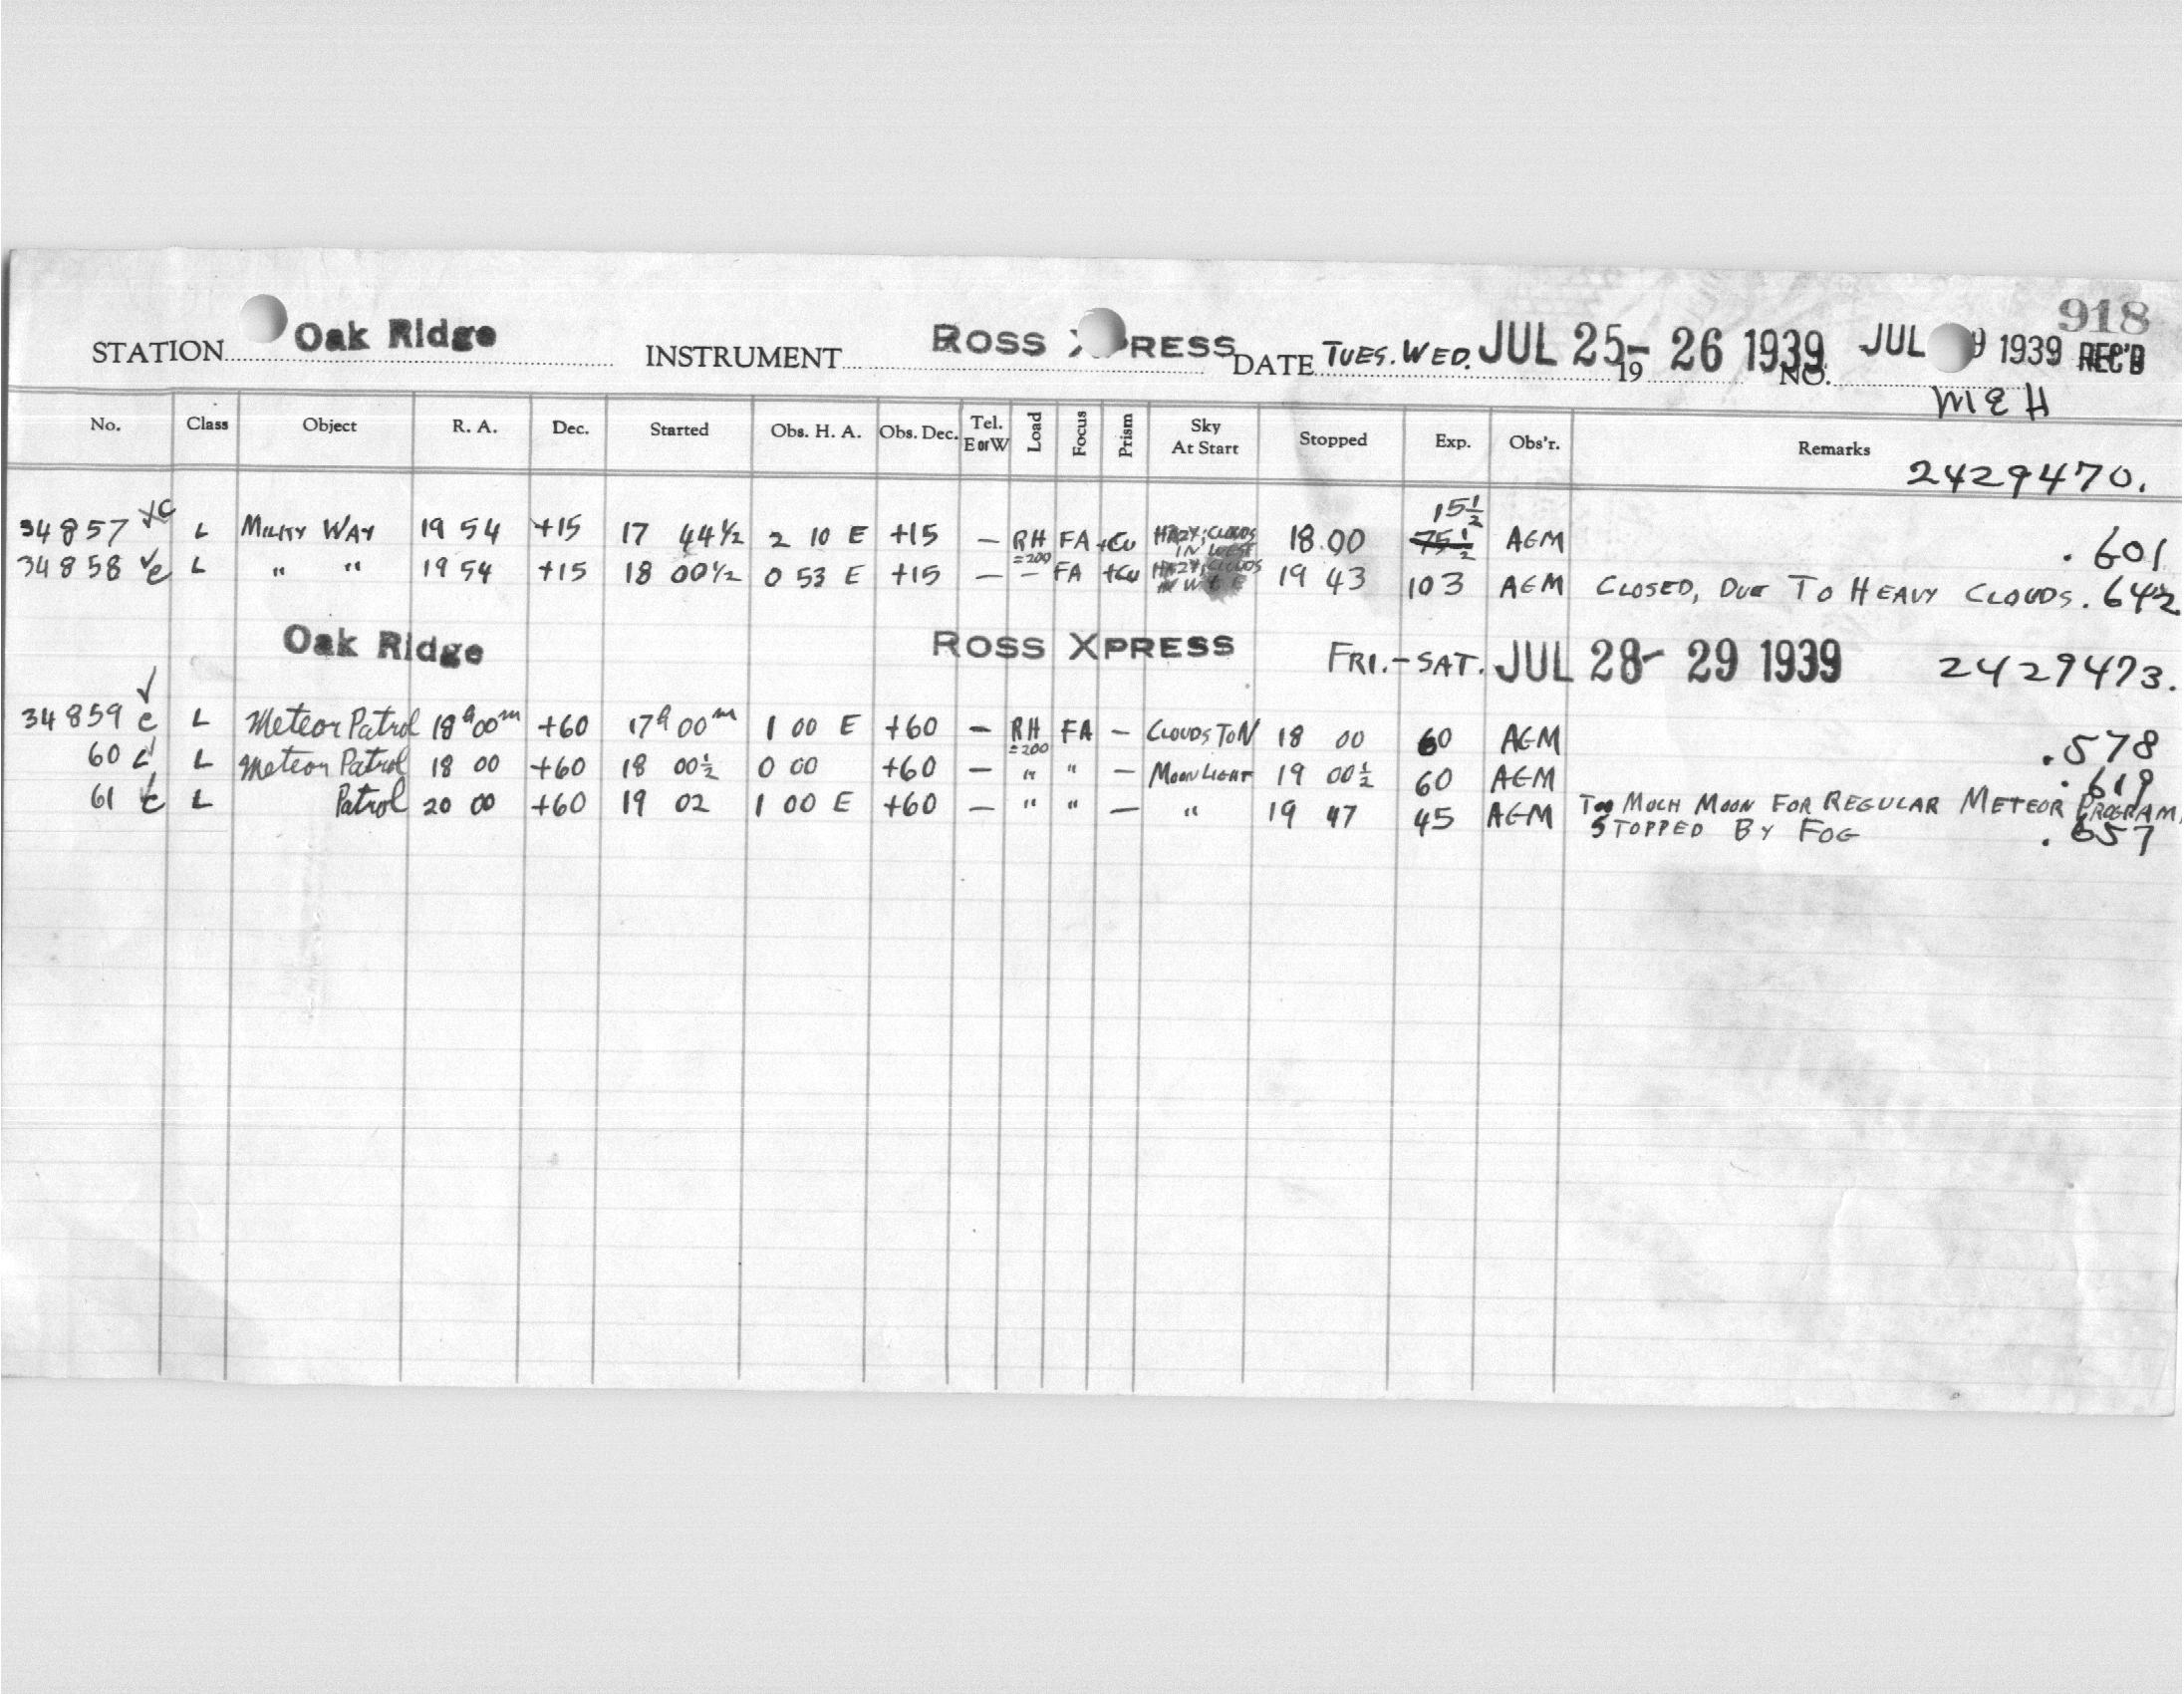 918
STATION Oak Ridge INSTRUMENT ROSS XPRESS DATE TUES. WED. JUL 25-26 1939 19 NO. JUL 9 1939 REC'D
MEH
No. Class Object R. A. Dec. Started Obs. H. A. Obs. Dec. Tel. E or W Load Focus Prism Sky At Start Stopped Exp. Obs'r. Remarks
2429470.
15½
34857 c L MILKY WAY 19 54 +15 17 44½ 2 10 E +15 – RH =200 FA +Cu HAZY; CLOUDS IN WEST 18 00 75½ AGM .601
34858 c L " " 19 54 +15 18 00½ 0 53 E +15 – – FA +Cu HAZY; CLOUDS IN W & E 19 43 103 AGM CLOSED, DUE TO HEAVY CLOUDS. .642
Oak Ridge ROSS XPRESS FRI.-SAT. JUL 28-29 1939 2429473.
34859 c L Meteor Patrol 18h00m +60 17h00m 1 00 E +60 – RH =200 FA – CLOUDS TO N 18 00 60 AGM .578
60 c L Meteor Patrol 18 00 +60 18 00½ 0 00 +60 – " " – MOONLIGHT 19 00½ 60 AGM .619
61 c L Patrol 20 00 +60 19 02 1 00 E +60 – " " – " 19 47 45 AGM TOO MUCH MOON FOR REGULAR METEOR PROGRAM.
STOPPED BY FOG .657